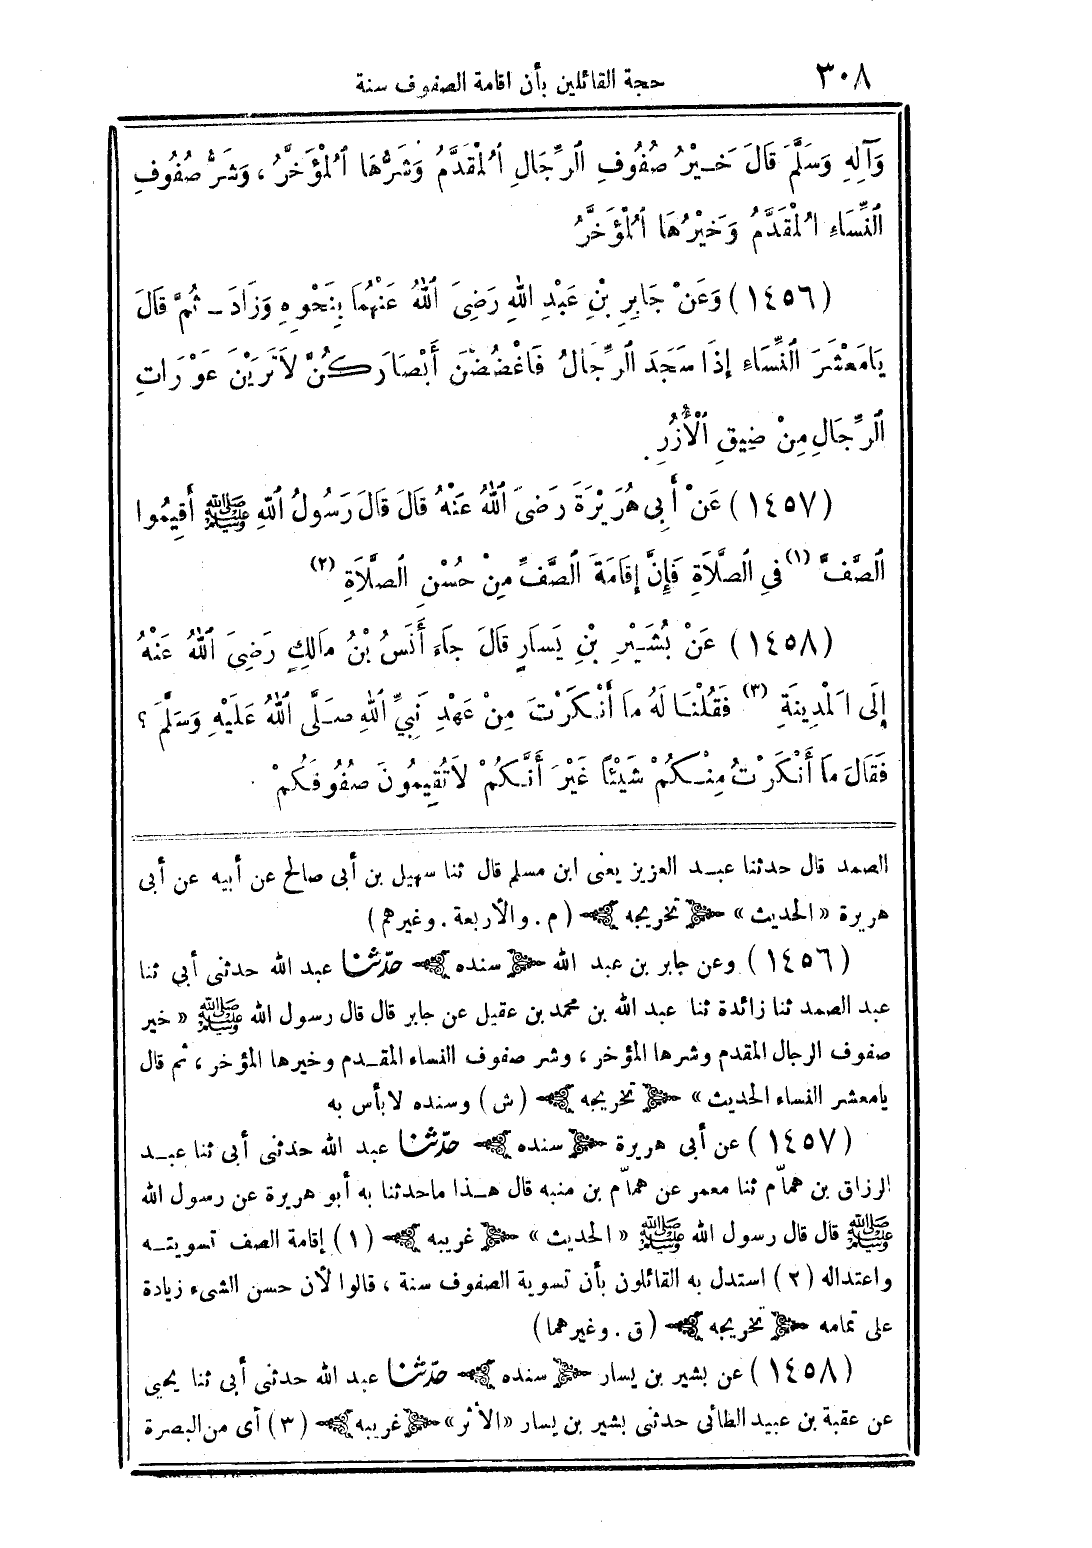 ٣٠٨ حجة القائلين بأن اقامة الصفوف سنة
وَآلِهِ وَسَلَّمَ قَالَ خَيْرُ صُفُوفِ الرِّجَالِ الْمُقَدَّمُ وَشَرُّهَا الْمُؤَخَّرُ ، وَشَرُّ صُفُوفِ
النِّسَاءِ الْمُقَدَّمُ وَخَيْرُهَا الْمُؤَخَّرُ
(١٤٥٦) وَعَنْ جَابِرِ بْنِ عَبْدِ اللهِ رَضِىَ اللهُ عَنْهُمَا بِنَحْوِهِ وَزَادَ ـ ثُمَّ قَالَ
يَامَعْشَرَ النِّسَاءِ إِذَا سَجَدَ الرِّجَالُ فَاغْضُضْنَ أَبْصَارَكُنَّ لاَتَرَيْنَ عَوْرَاتِ
الرِّجَالِ مِنْ ضِيقِ الْأُزُرِ .
(١٤٥٧) عَنْ أَبِى هُرَيْرَةَ رَضِىَ اللهُ عَنْهُ قَالَ قَالَ رَسُولُ اللهِ ﷺ أَقِيمُوا
الصَّفَّ (١) فِى الصَّلاَةِ فَإِنَّ إِقَامَةَ الصَّفِّ مِنْ حُسْنِ الصَّلاَةِ (٢)
(١٤٥٨) عَنْ بُشَيْرِ بْنِ يَسَارٍ قَالَ جَاءَ أَنَسُ بْنُ مَالِكٍ رَضِىَ اللهُ عَنْهُ
إِلَى الْمَدِينَةِ (٣) فَقُلْنَا لَهُ مَا أَنْكَرْتَ مِنْ عَهْدِ نَبِىِّ اللهِ صَلَّى اللهُ عَلَيْهِ وَسَلَّمَ ؟
فَقَالَ مَا أَنْكَرْتُ مِنْكُمْ شَيْئًا غَيْرَ أَنَّكُمْ لاَتُقِيمُونَ صُفُوفَكُمْ .
الصمد قال حدثنا عبد العزيز يعنى ابن مسلم قال ثنا سهيل بن أبى صالح عن أبيه عن أبى
هريرة «الحديث» تخريجه (م . والأربعة . وغيرهم)
(١٤٥٦) وعن جابر بن عبد الله سنده حدّثنا عبد الله حدثنى أبي ثنا
عبد الصمد ثنا زائدة ثنا عبد الله بن محمد بن عقيل عن جابر قال قال رسول الله ﷺ «خير
صفوف الرجال المقدم وشرها المؤخر ، وشر صفوف النساء المقدم وخيرها المؤخر ، ثم قال
يامعشر النساء الحديث» تخريجه (ش) وسنده لابأس به
(١٤٥٧) عن أبى هريرة سنده حدّثنا عبد الله حدثنى أبى ثنا عبد
الرزاق بن همّام ثنا معمر عن همّام بن منبه قال هذا ماحدثنا به أبو هريرة عن رسول الله
ﷺ قال قال رسول الله ﷺ «الحديث» غريبه (١) إقامة الصف تسويته
واعتداله (٢) استدل به القائلون بأن تسوية الصفوف سنة ، قالوا لأن حسن الشىء زيادة
على تمامه تخريجه (ق . وغيرهما)
(١٤٥٨) عن بشير بن يسار سنده حدّثنا عبد الله حدثنى أبى ثنا يحيى
عن عقبة بن عبيد الطائى حدثنى بشير بن يسار «الأثر» غريبه (٣) أى من البصرة